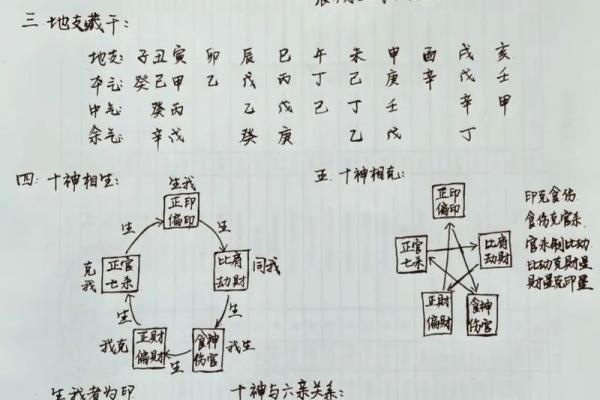 三.地支藏干:
地支: 子 丑 寅 卯 辰 巳 午 未 申 酉 戌 亥
本气: 癸 己 甲 乙 戊 丙 丁 己 庚 辛 戊 壬
中气: 癸 丙 乙 戊 己 丁 壬 辛 甲
余气: 辛 戊 癸 庚 乙 戊 丁
四.十神相生:
生我
正印
偏印
生
生
正官
七杀
克我
比肩
劫财
同我
生
生
正财
偏财
我克
食神
伤官
我生
生
五.十神相克:
正印
偏印
正官
七杀
比肩
劫财
正财
偏财
食神
伤官
印克食伤
食伤克官杀
官杀制比劫
比劫克财星
财星克印星
生我者为印
十神与六亲关系: